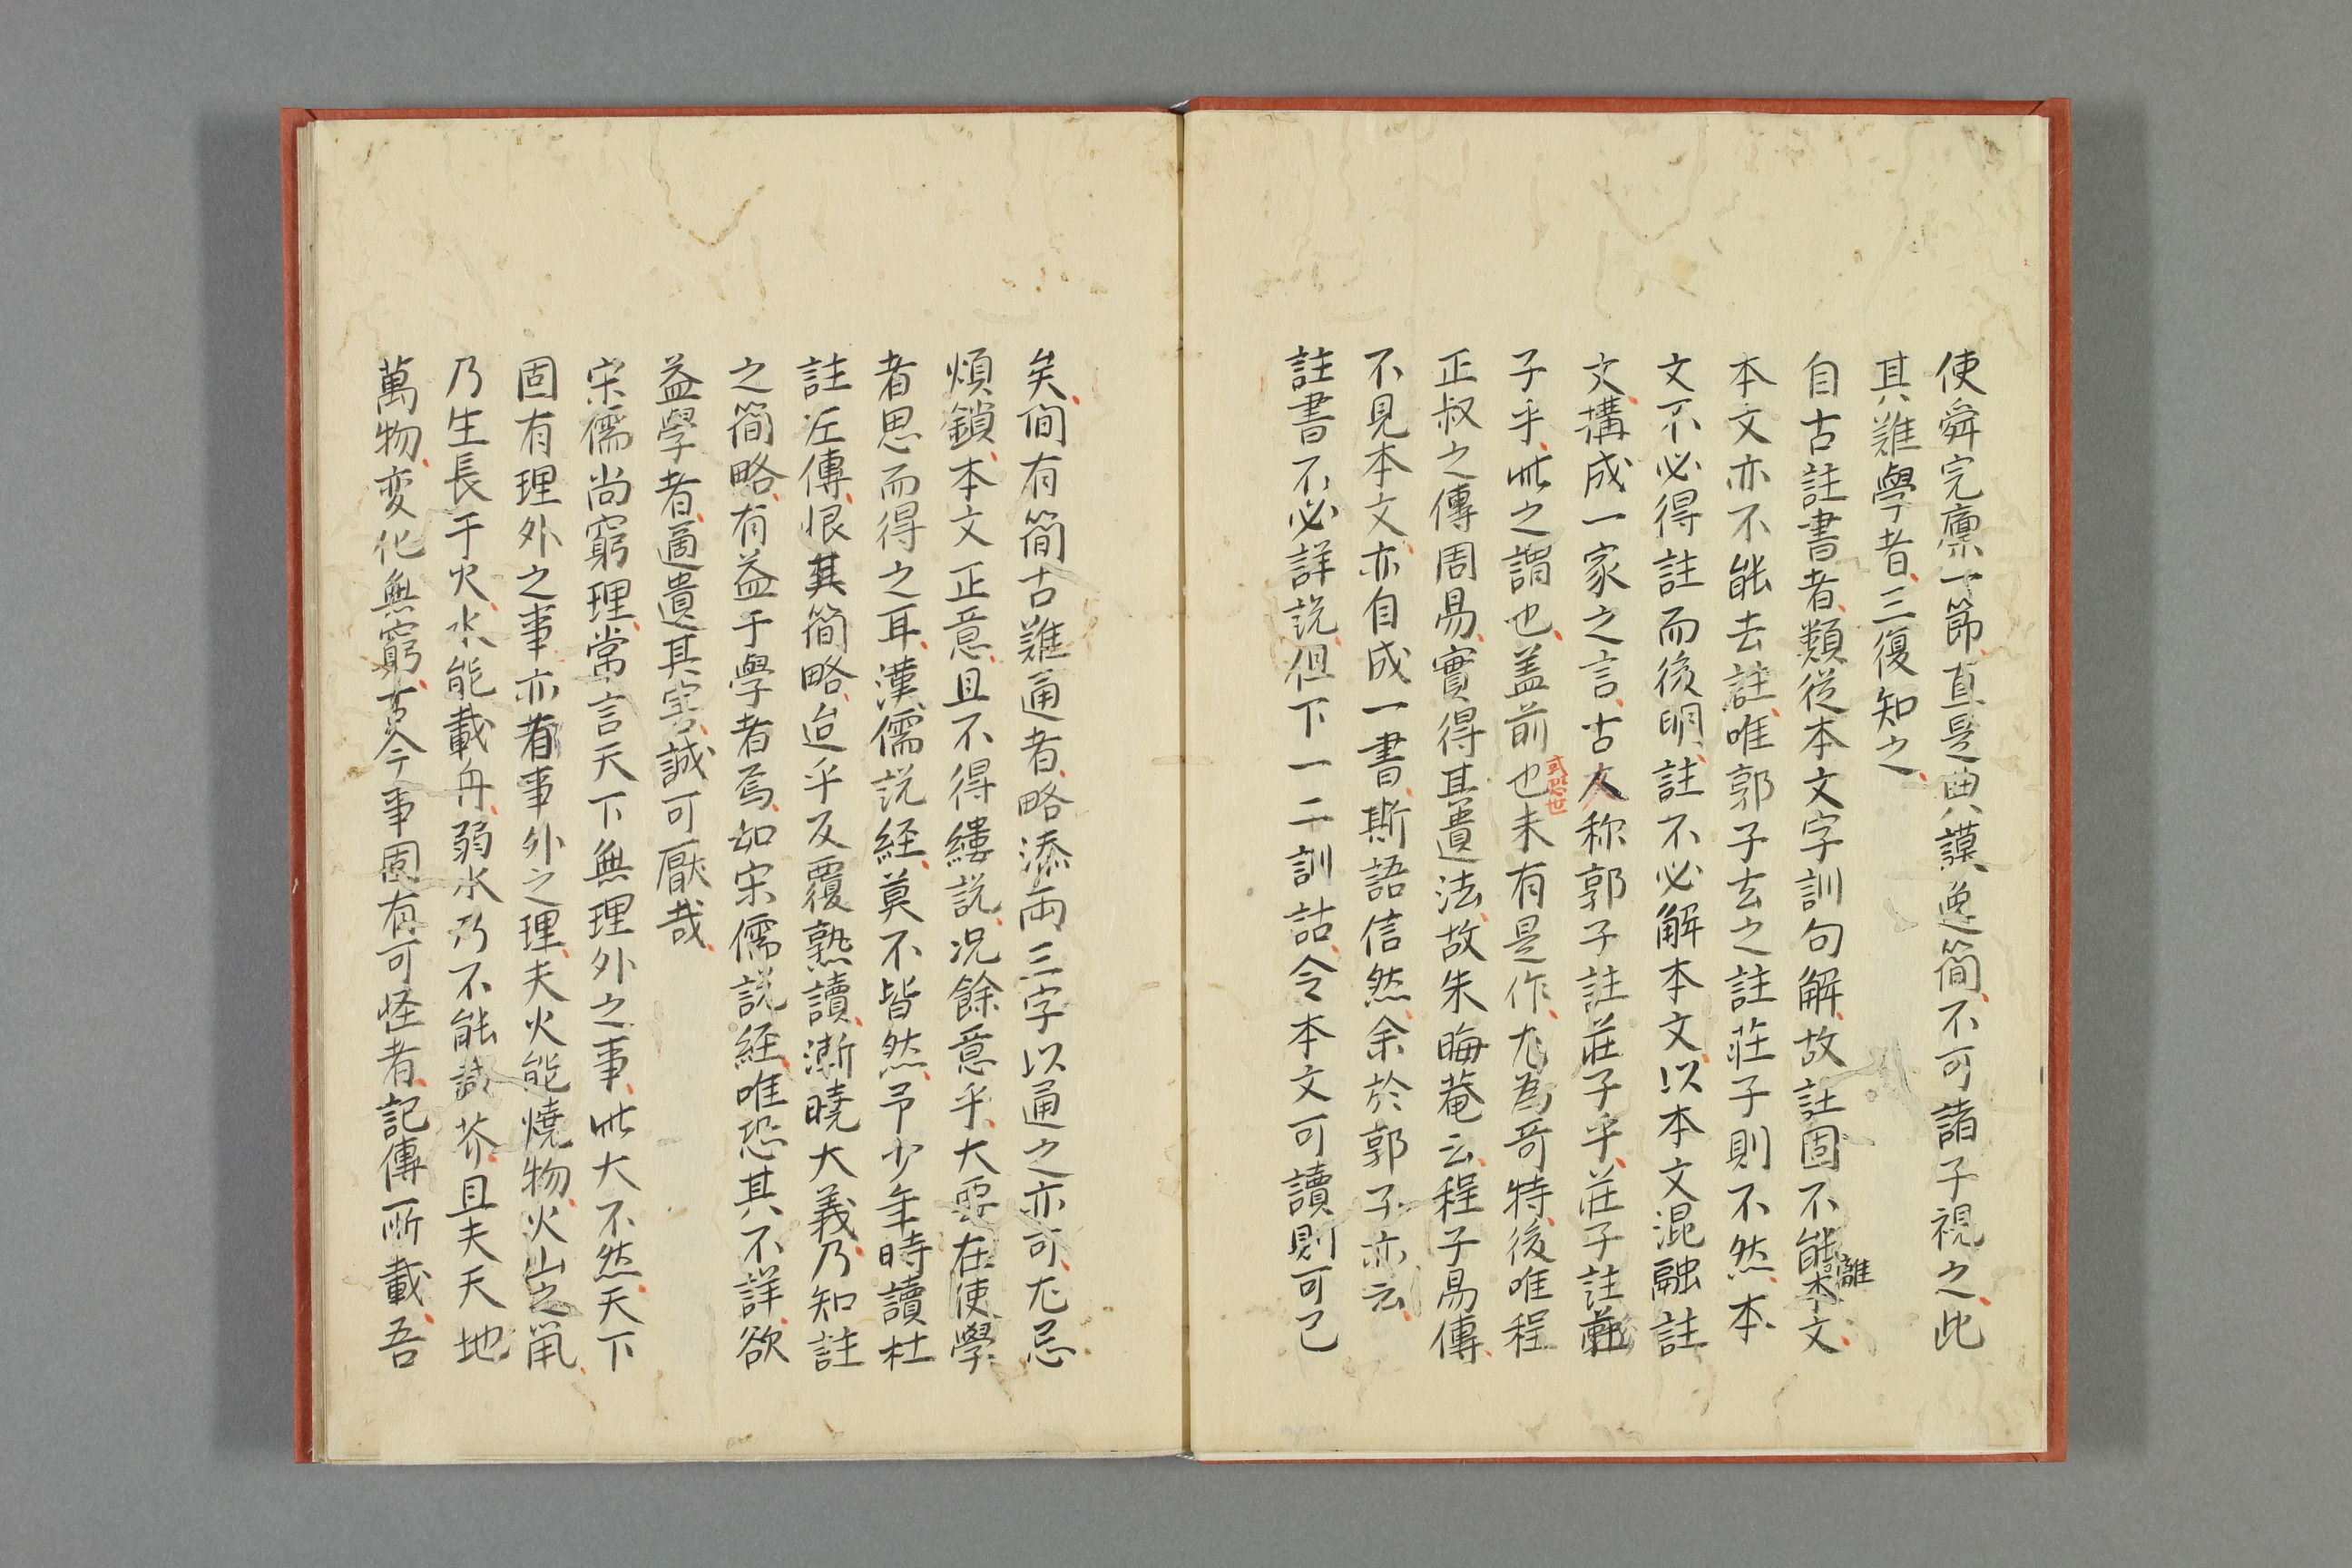 使舜完廩一節、直是典謨逸簡、不可諸子視之、此
其難學者、三復知之、
自古註書者、類從本文字訓句解、故註固不能離本文、
本文亦不能去註、唯郭子玄之註莊子則不然、本
文不必得註而後明、註不必解本文、以本文混融註
文、搆成一家之言、古人称郭子註莊子乎、莊子註郭
子乎、此之謂也、盖前也未有是作、尤為奇特、後唯程
或恐世
正叔之傳周易、實得其遺法、故朱晦菴云、程子易傳、
不見本文、亦自成一書、斯語信然、余於郭子亦云、
註書不必詳說、但下一二訓詁、令本文可讀則可已
矣、间有简古難通者、略添両三字以通之亦可、尤忌
煩鎖、本文正意、且不得縷説、况餘意乎、大要在使學
者思而得之耳、漢儒説経、莫不皆然、予少年時讀杜
註左傳、恨其簡略、迨乎反覆熟讀、漸曉大義、乃知註
之簡略、有益于學者焉、如宋儒説経、唯恐其不詳、欲
益學者、適遺其害、誠可厭哉、
宋儒尚窮理、常言天下無理外之事、此大不然、天下
固有理外之事、亦有事外之理、夫火能燒物、火山之鼠、
乃生長于火、水能載舟、弱水乃不能載芥、且夫天地
萬物、変化無窮、古今事固有可怪者、記傳所載、吾